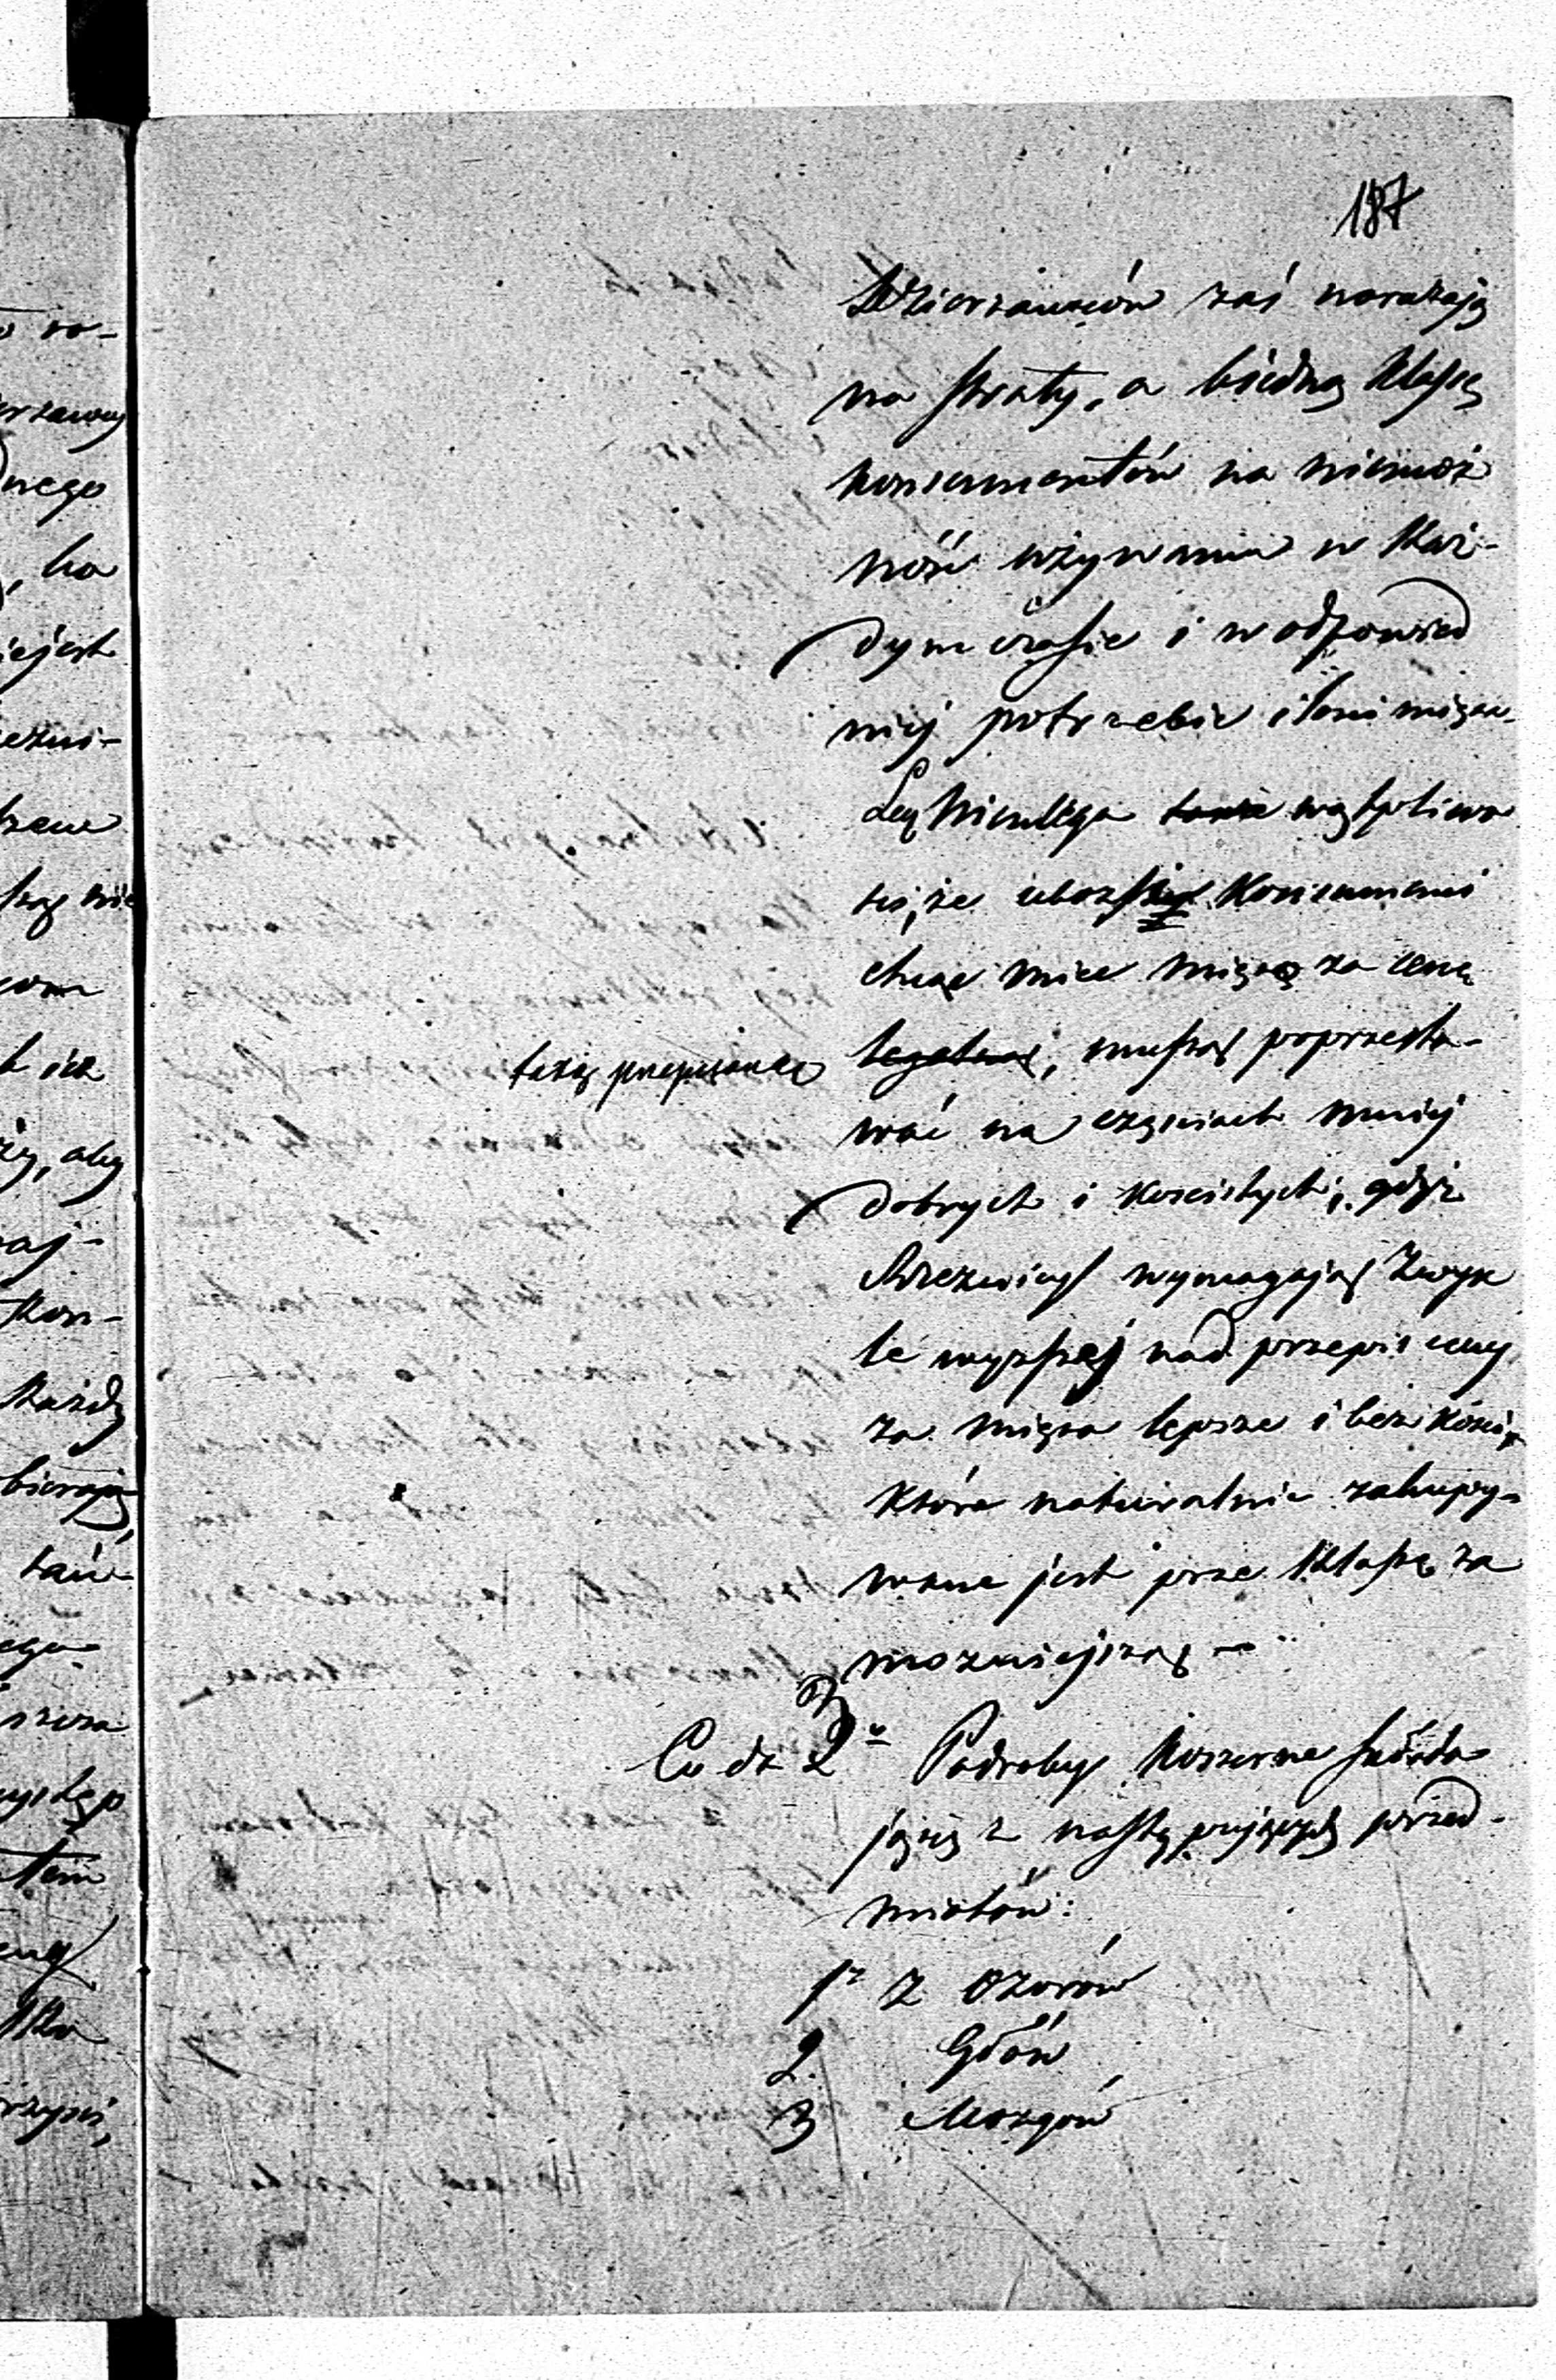 187
Dzierżawców zaś narażają
na straty, a biedną klassę
konsumentów na niemoż
ność używania w każ-
dym czasie i w odpowied
niej potrzebie ilości mięsa.
Lecz nieulega wątpliwo
ści, że ubozsi Konsumenci
chcąc mieć mięso za cenę
taxą przepisaną legalną, muszą poprzesta-
wać na częściach mniej
dobrych i kościstych, gdyż
Rzeznicy wymagają zwyk
le wyższej nad przepis ceny
za mięsa lepsze i bez kości,
które naturalnie zakupy-
wane jest prze klassę za
możniejszą —
Co do 3º Podroby Koszerne składa
ją się z następujących przed-
miotów:
1º z ozorów
2. Głów
3 Mozgów
ro-
nego
iejest
aby
raj-
Kon-
każdy
bierają,